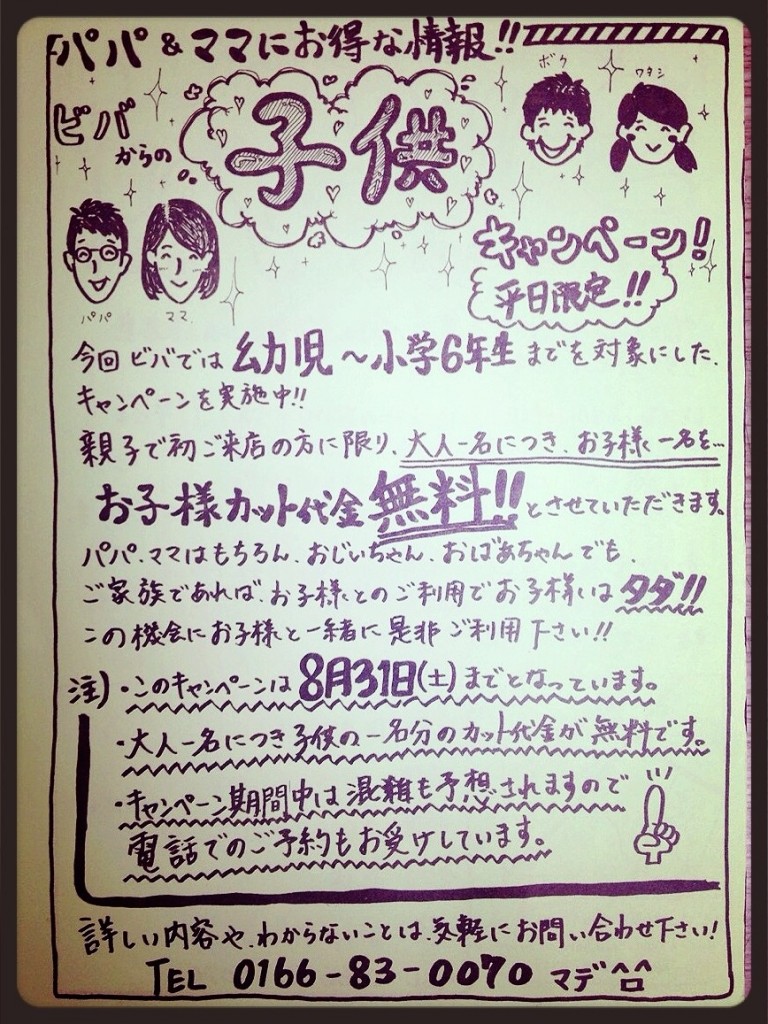 パパ&ママにお得な情報!!
ビバからの
子供
ボク
ワタシ
パパ
ママ
キャンペーン!
平日限定!!
今回ビバでは幼児〜小学6年生までを対象にした、
キャンペーンを実施中!!
親子で初ご来店の方に限り、大人一名につき、お子様一名を…
お子様カット代金無料!!とさせていただきます。
パパ、ママはもちろん、おじいちゃん、おばあちゃんでも、
ご家族であれば、お子様とのご利用でお子様はタダ!!
この機会にお子様と一緒に是非ご利用下さい!!
注)・このキャンペーンは8月31日(土)までとなっています。
・大人一名につき子供の一名分のカット代金が無料です。
・キャンペーン期間中は混雑も予想されますので
電話でのご予約もお受けしています。
詳しい内容や、わからないことは、気軽にお問い合わせ下さい!
TEL 0166-83-0070 マデ^ロ^